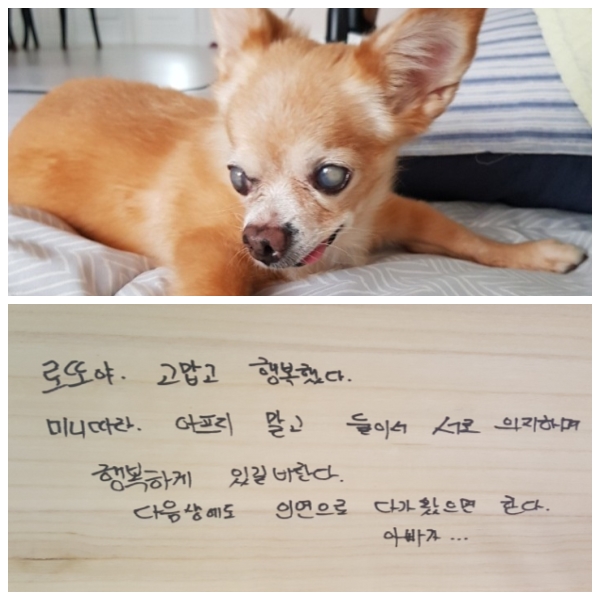 로또야. 고맙고 행복했다.
미니따라. 아프지 말고 둘이서 서로 의지하며
행복하게 있길 바란다.
다음생에도 인연으로 다가왔으면 한다.
아빠가 ...